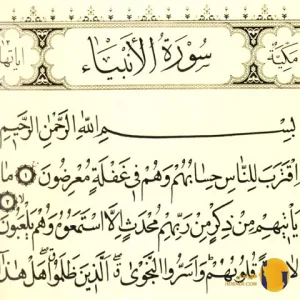 مكية سورة الأنبياء آياتها
بِسْمِ اللَّهِ الرَّحْمَٰنِ الرَّحِيمِ
اقْتَرَبَ لِلنَّاسِ حِسَابُهُمْ وَهُمْ فِي غَفْلَةٍ مُعْرِضُونَ ١ مَا
يَأْتِيهِمْ مِنْ ذِكْرٍ مِنْ رَبِّهِمْ مُحْدَثٍ إِلَّا اسْتَمَعُوهُ وَهُمْ يَلْعَبُونَ
لَاهِيَةً قُلُوبُهُمْ وَأَسَرُّوا النَّجْوَى الَّذِينَ ظَلَمُوا هَلْ هَٰذَا